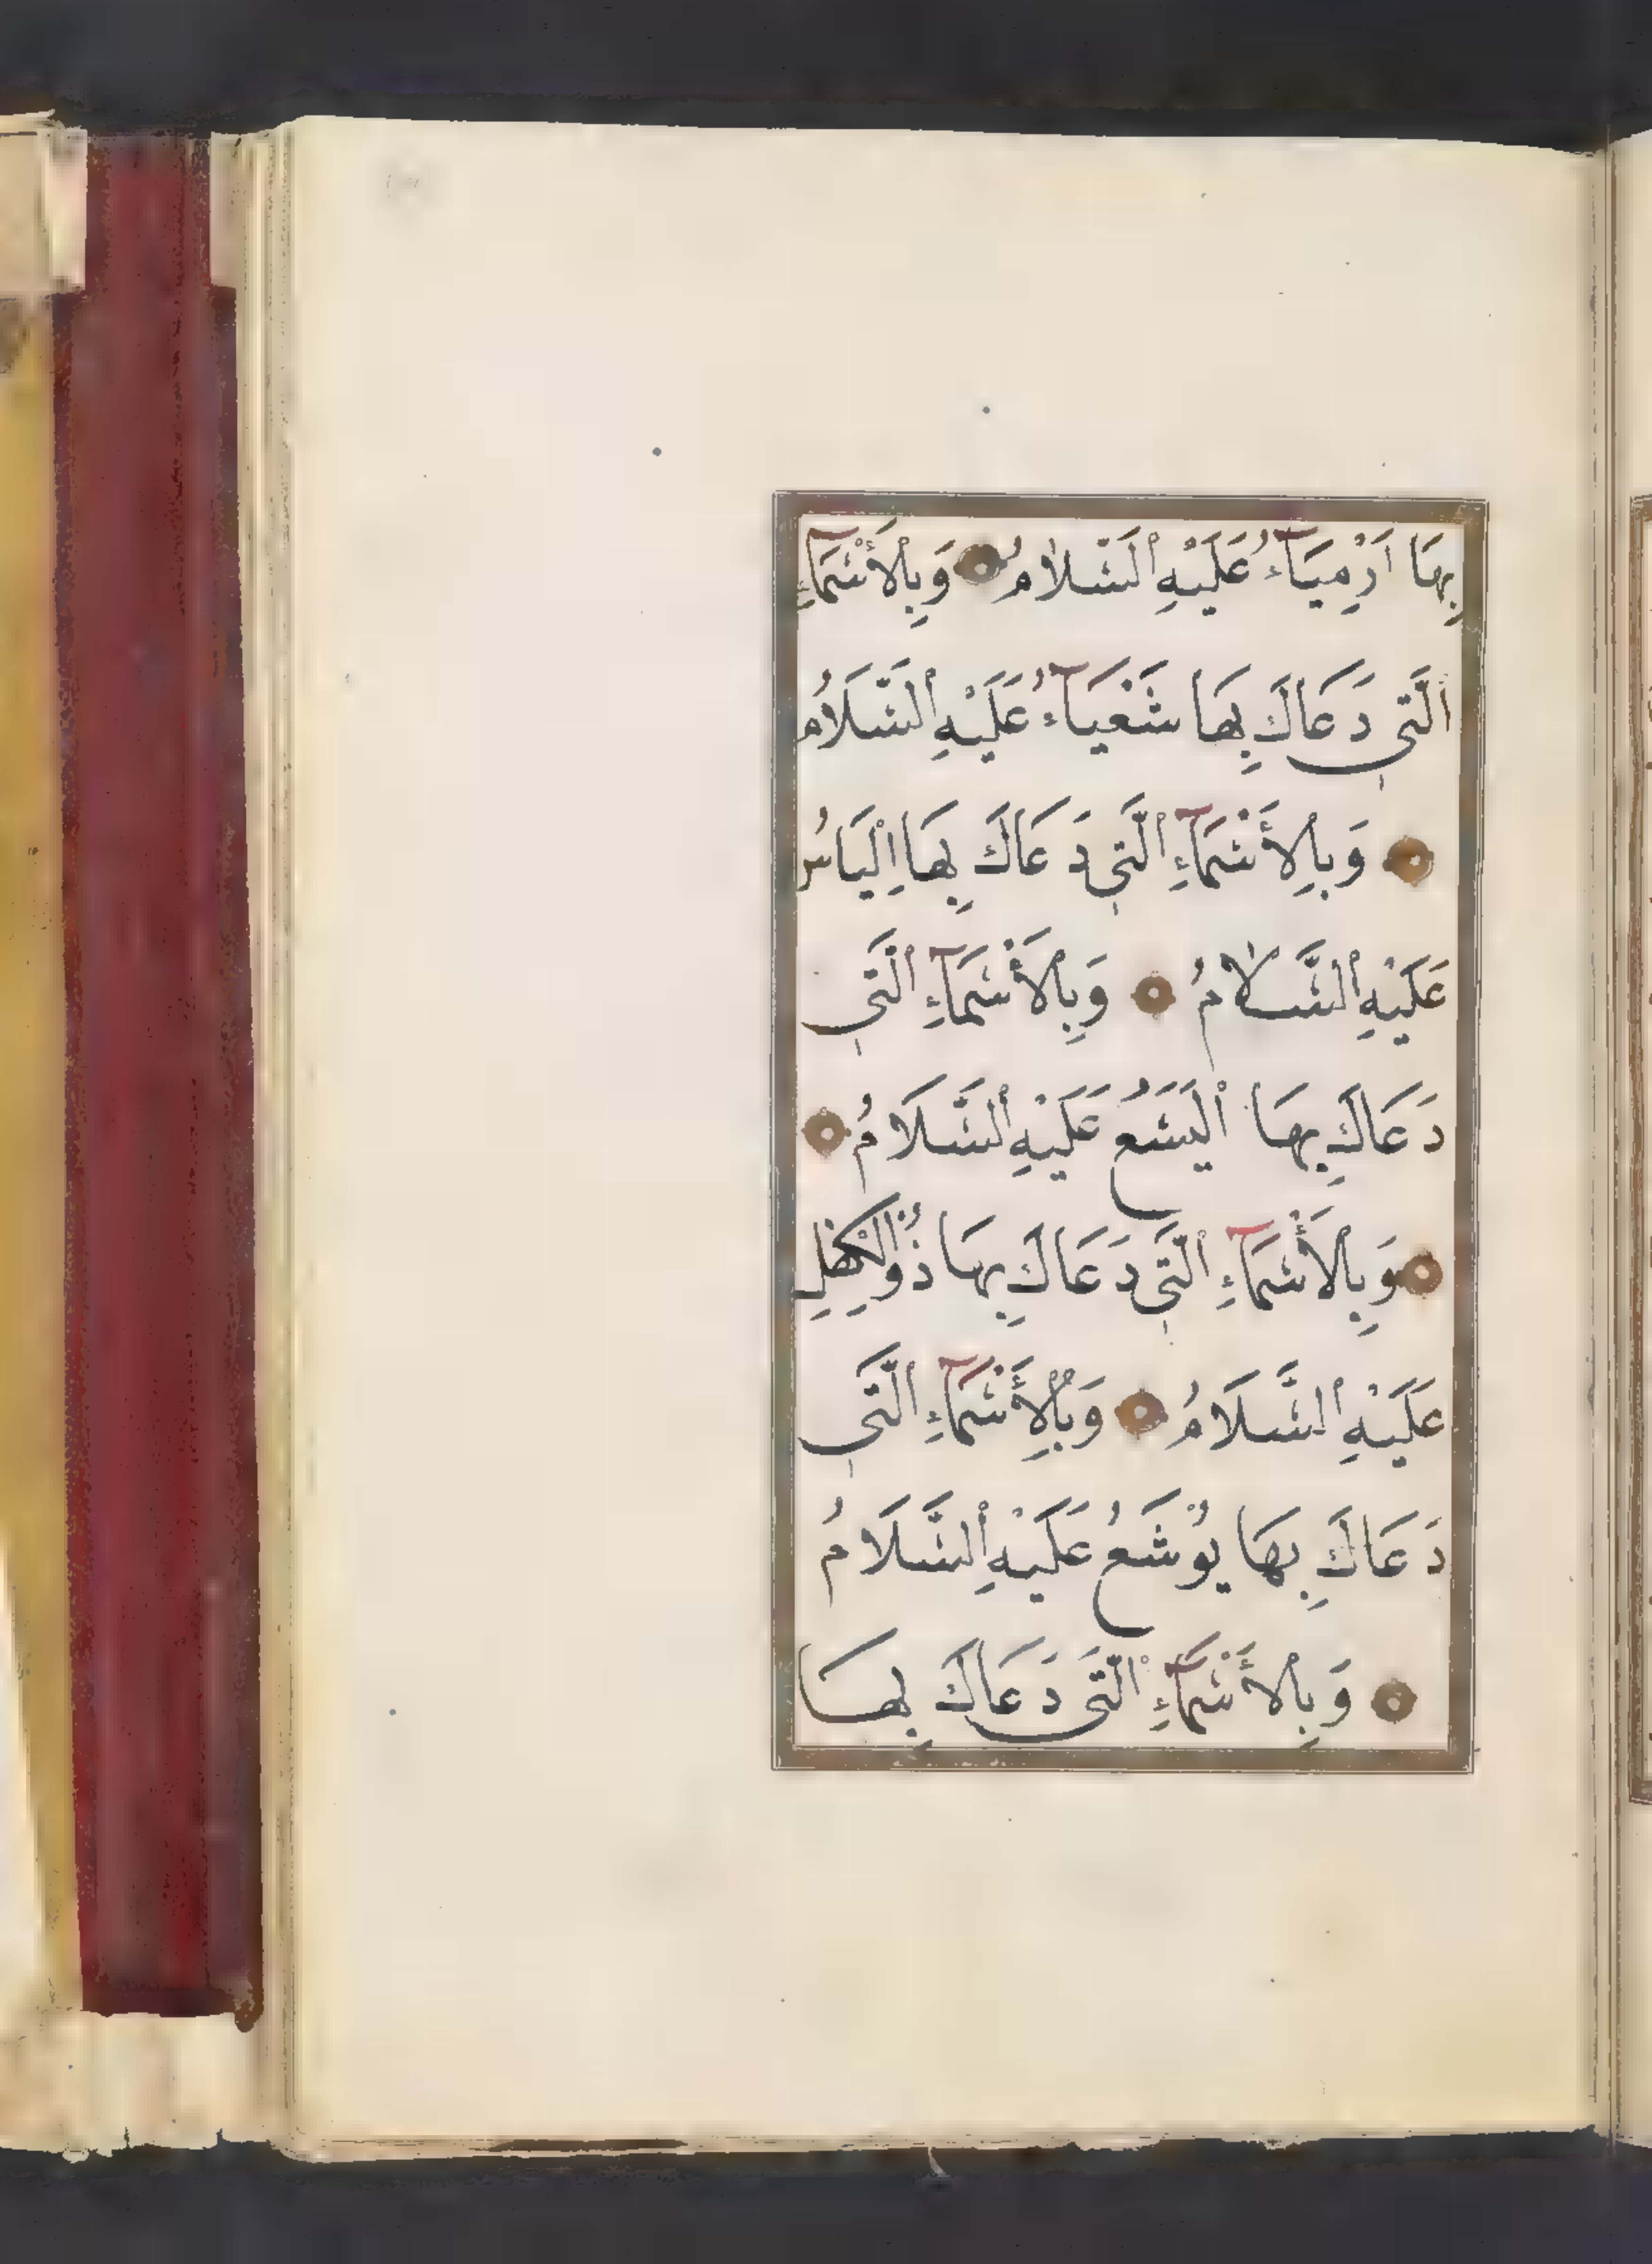 بِهَا اَرْمِيَآءُ عَلَيْهِ السَّلَامُ وَبِالْأَسْمَآءِ
الَّتِي دَعَاكَ بِهَا شَعْيَآءُ عَلَيْهِ السَّلَامُ
وَبِالْأَسْمَآءِ الَّتِي دَعَاكَ بِهَا اِلْيَاسُ
عَلَيْهِ السَّلَامُ وَبِالْأَسْمَآءِ الَّتِي
دَعَاكَ بِهَا الْيَسَعُ عَلَيْهِ السَّلَامُ
وَبِالْأَسْمَآءِ الَّتِي دَعَاكَ بِهَا ذُوالْكِفْلِ
عَلَيْهِ السَّلَامُ وَبِالْأَسْمَآءِ الَّتِي
دَعَاكَ بِهَا يُوْشَعُ عَلَيْهِ السَّلَامُ
وَبِالْأَسْمَآءِ الَّتِي دَعَاكَ بِهَا